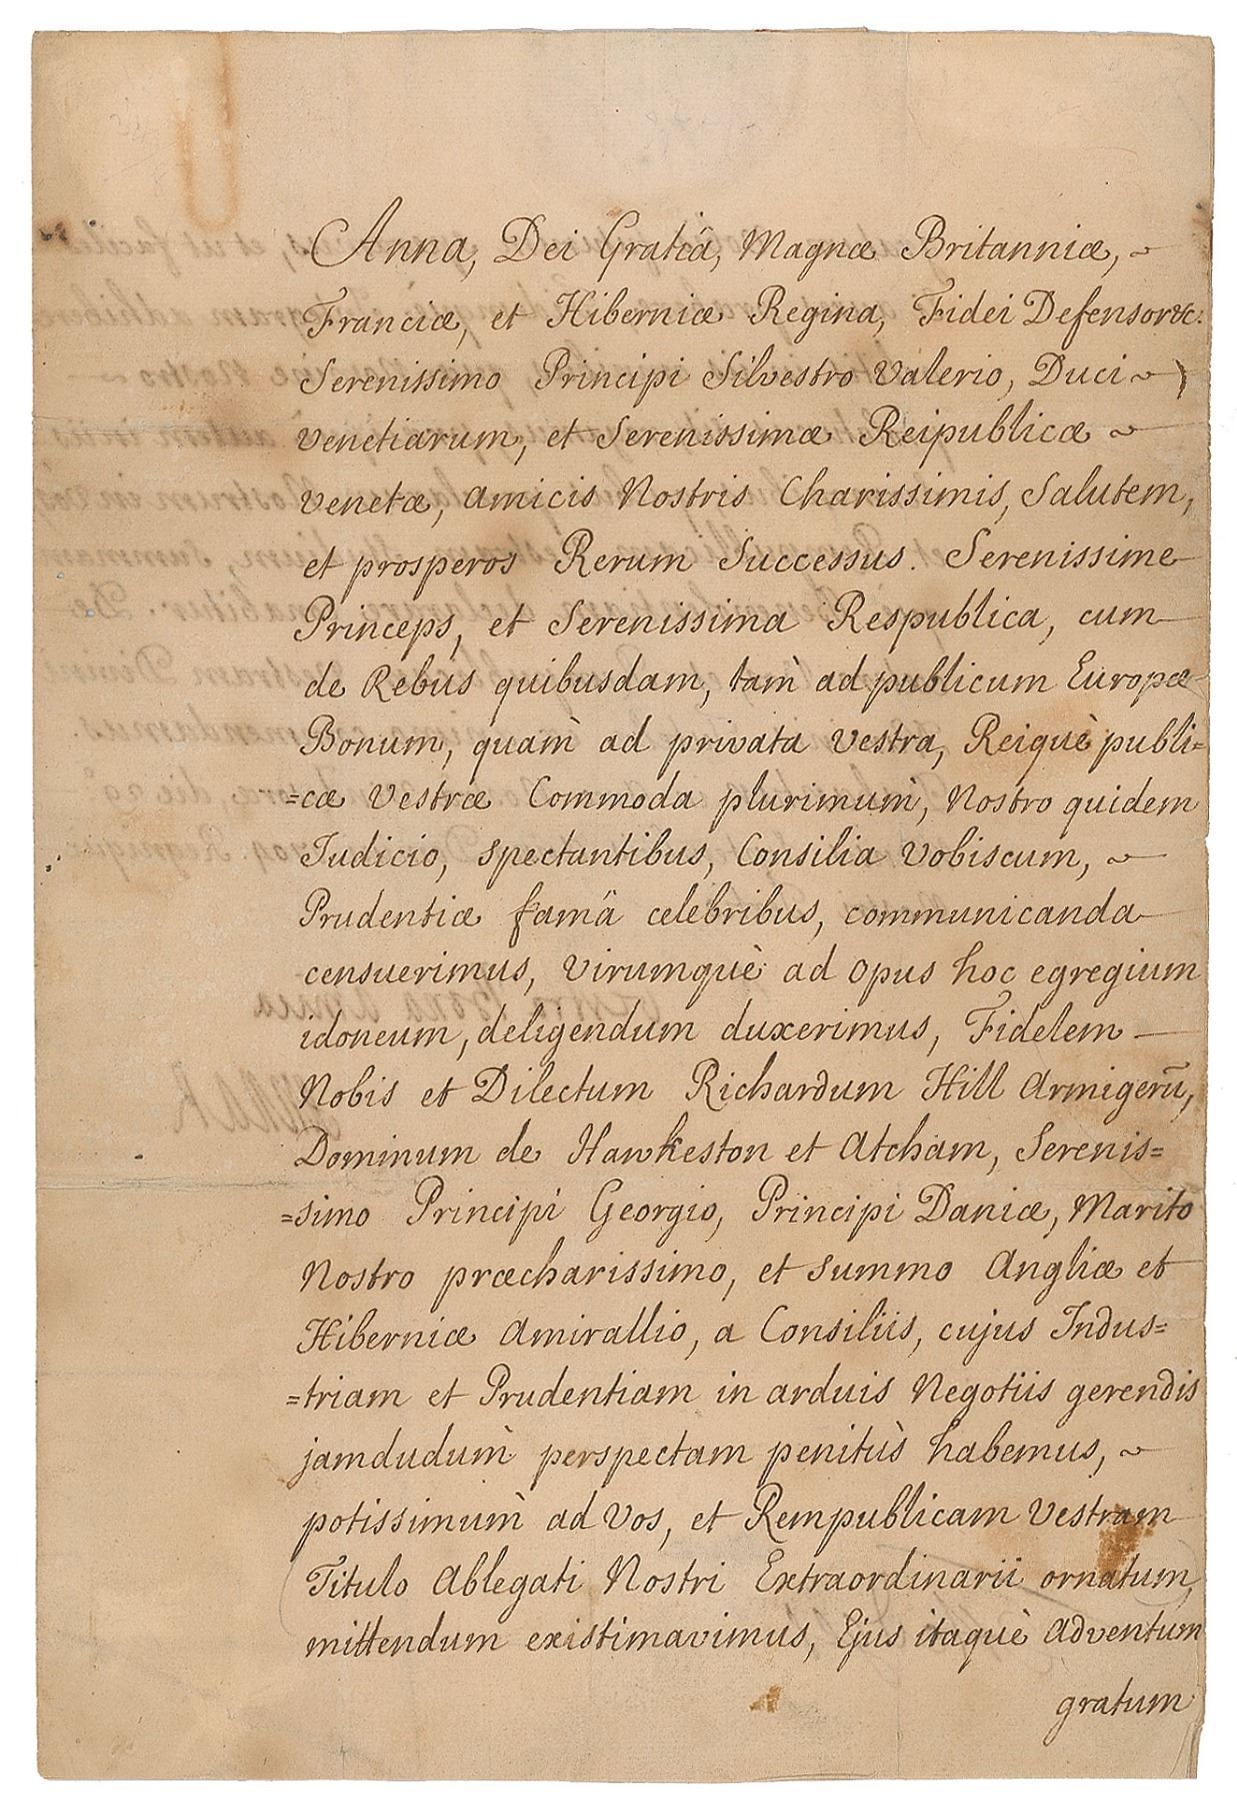 Anna, Dei Gratiâ, Magnæ Britanniæ, ~
Franciæ, et Hiberniæ Regina, Fidei Defensor &c.
Serenissimo Principi Silvestro Valerio, Duci ~
Venetiarum, et Serenissimæ Reipublicæ ~
Venetæ, Amicis Nostris Charissimis, Salutem,
et prosperos Rerum Successus. Serenissime
Princeps, et Serenissima Respublica, cum
de Rebus quibusdam, tam̀ ad publicum Europæ
Bonum, quam̀ ad privata Vestra, Reiquè publi=
=cæ Vestræ Commoda plurimum̀, Nostro quidem
Iudicio, spectantibus, Consilia Vobiscum, ~
Prudentiæ famâ celebribus, communicanda
censuerimus, Virumquè ad Opus hoc egregium
idoneum, deligendum duxerimus, Fidelem —
Nobis et Dilectum Richardum Hill Armigerū,
Dominum de Hawkeston et Atcham, Serenis=
=simo Principi Georgio, Principi Daniæ, Marito
Nostro præcharissimo, et Summo Angliæ et
Hiberniæ Amirallio, a Consiliis, cujus Indus=
=triam et Prudentiam in arduis Negotiis gerendis
jamdudum̀ perspectam penitùs habemus, ~
potissimum̀ ad Vos, et Rempublicam Vestram
Titulo Ablegati Nostri Extraordinarii ornatum,
mittendum existimavimus, Ejus itaquè Adventum
gratum